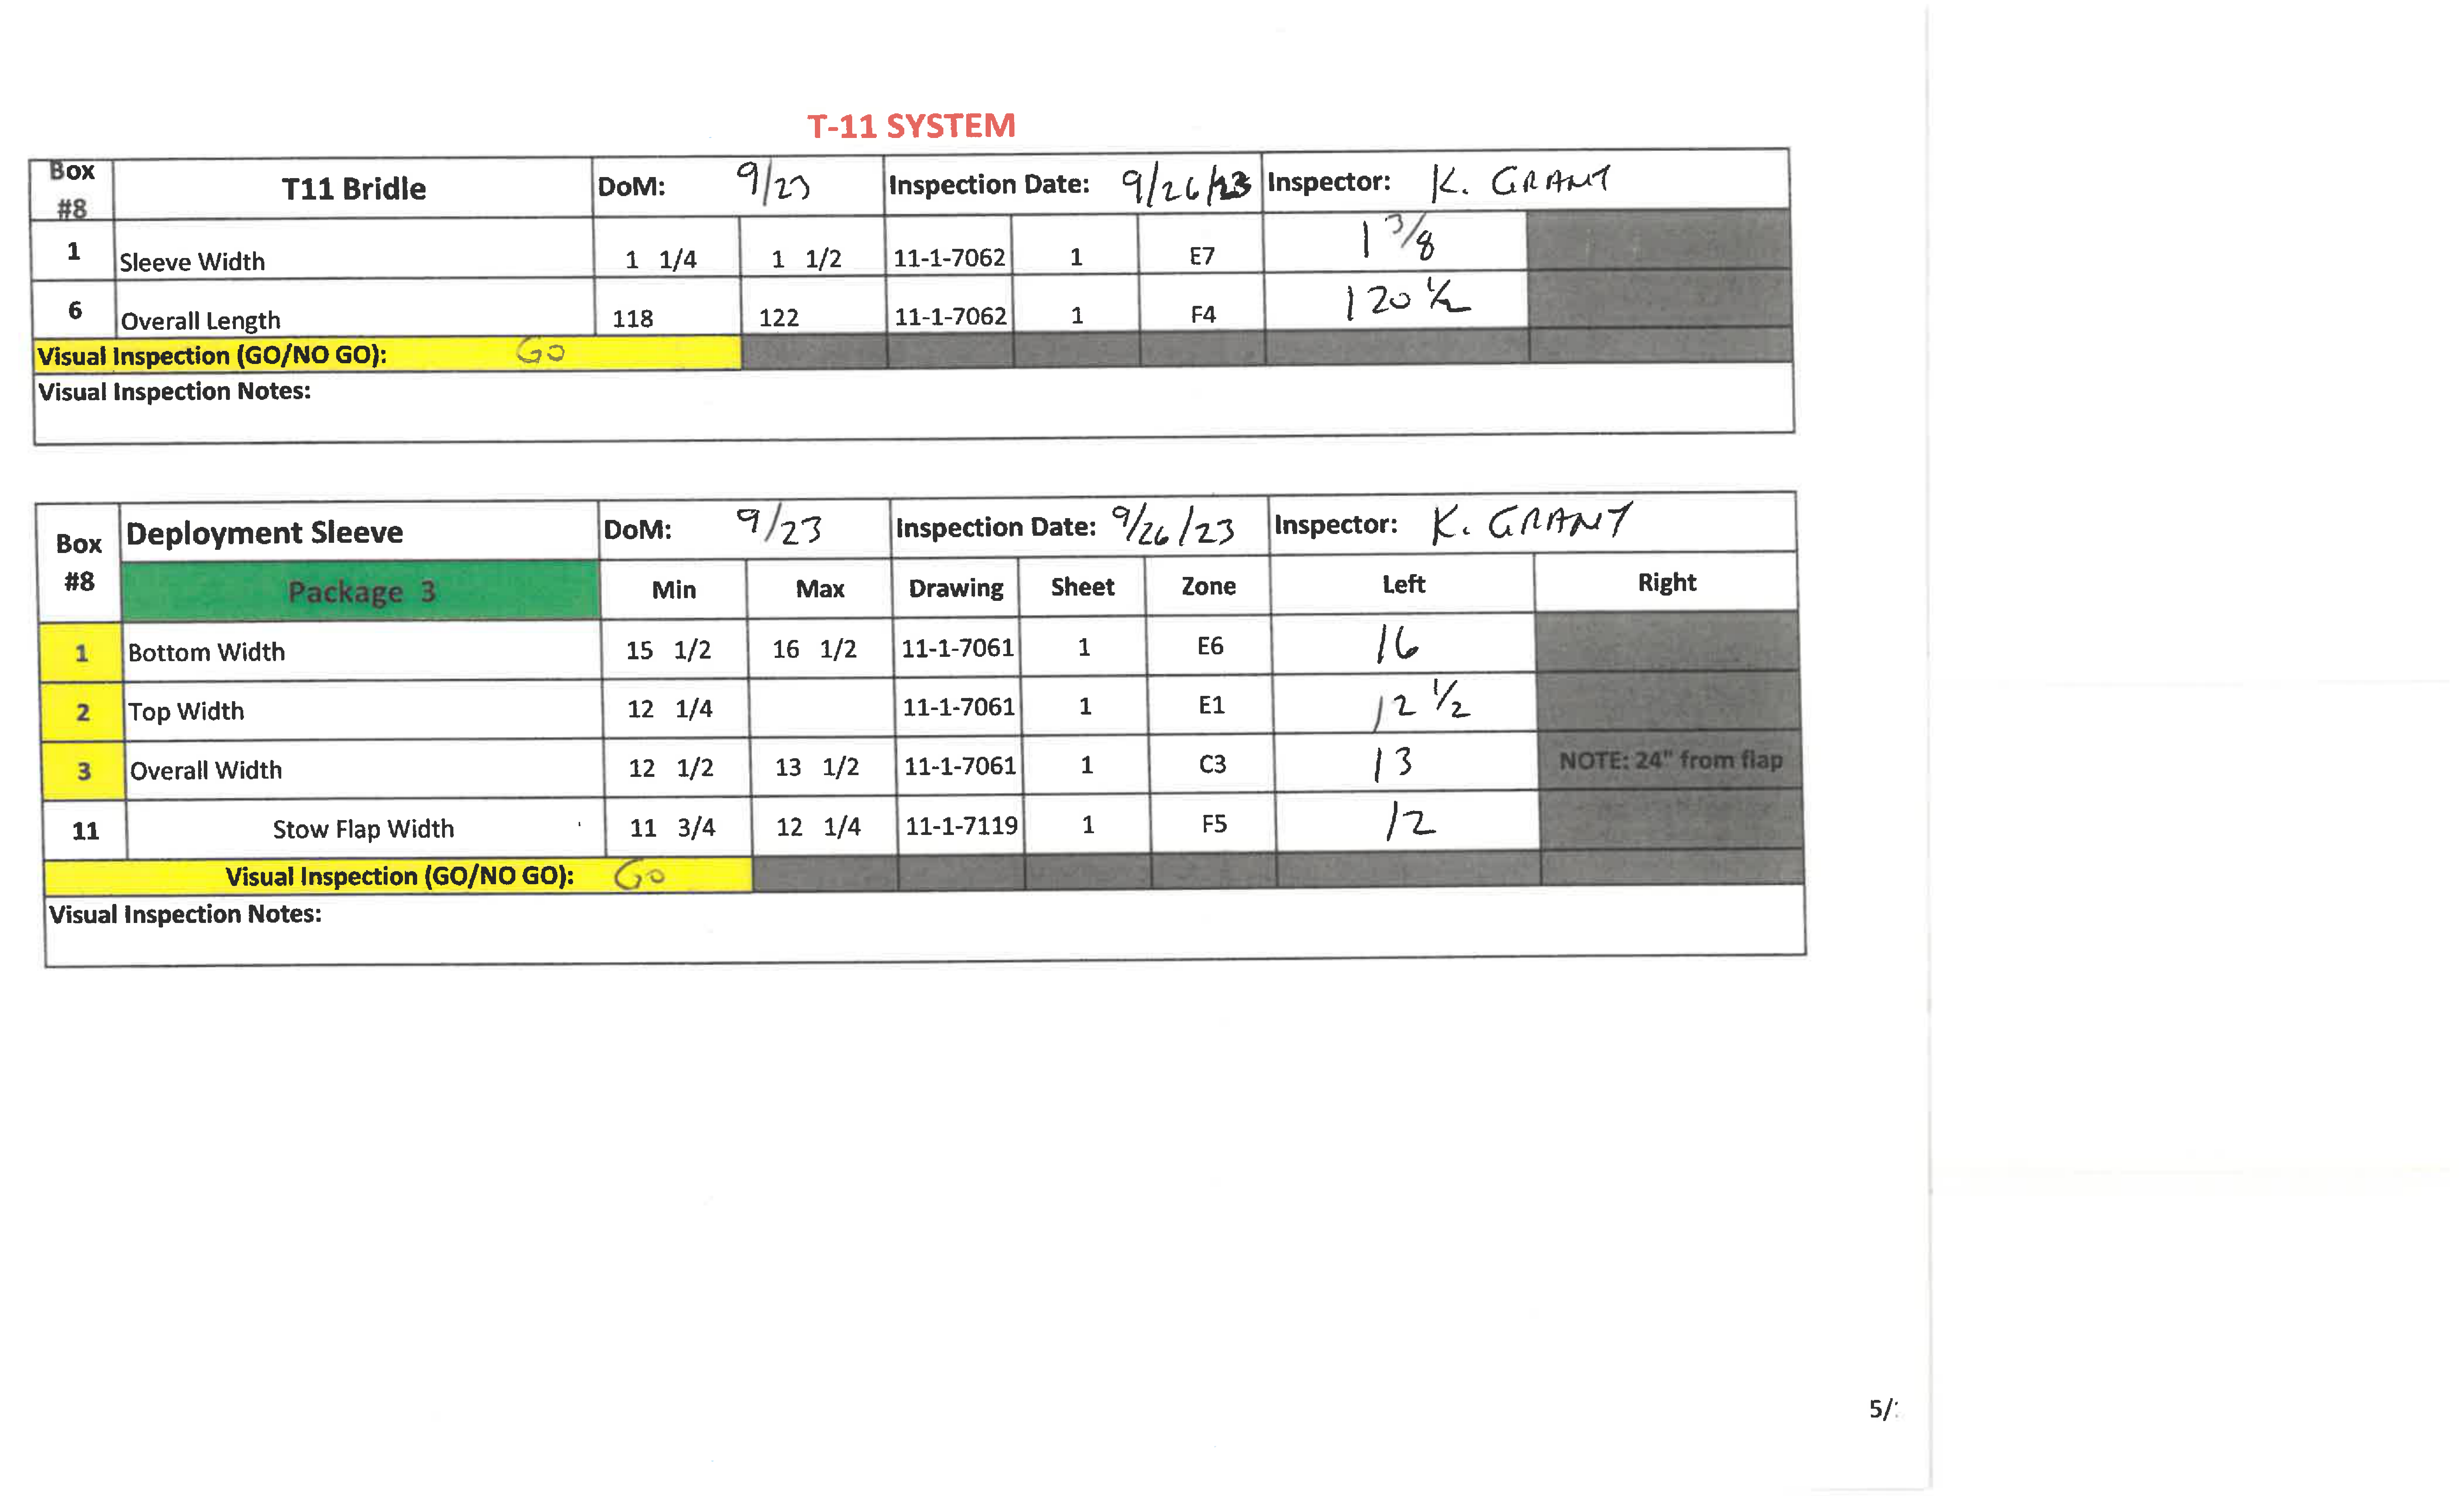 T-11 SYSTEM
Box #8 T11 Bridle DoM: 9/23 Inspection Date: 9/26/23 Inspector: K. GRANT
1 Sleeve Width 1 1/4 1 1/2 11-1-7062 1 E7 1 3/8
6 Overall Length 118 122 11-1-7062 1 F4 120 1/2
Visual Inspection (GO/NO GO): GO
Visual Inspection Notes:
Box #8 Deployment Sleeve DoM: 9/23 Inspection Date: 9/26/23 Inspector: K. GRANT
Package 3 Min Max Drawing Sheet Zone Left Right
1 Bottom Width 15 1/2 16 1/2 11-1-7061 1 E6 16
2 Top Width 12 1/4 11-1-7061 1 E1 12 1/2
3 Overall Width 12 1/2 13 1/2 11-1-7061 1 C3 13 NOTE: 24" from flap
11 Stow Flap Width 11 3/4 12 1/4 11-1-7119 1 F5 12
Visual Inspection (GO/NO GO): Go
Visual Inspection Notes:
5/